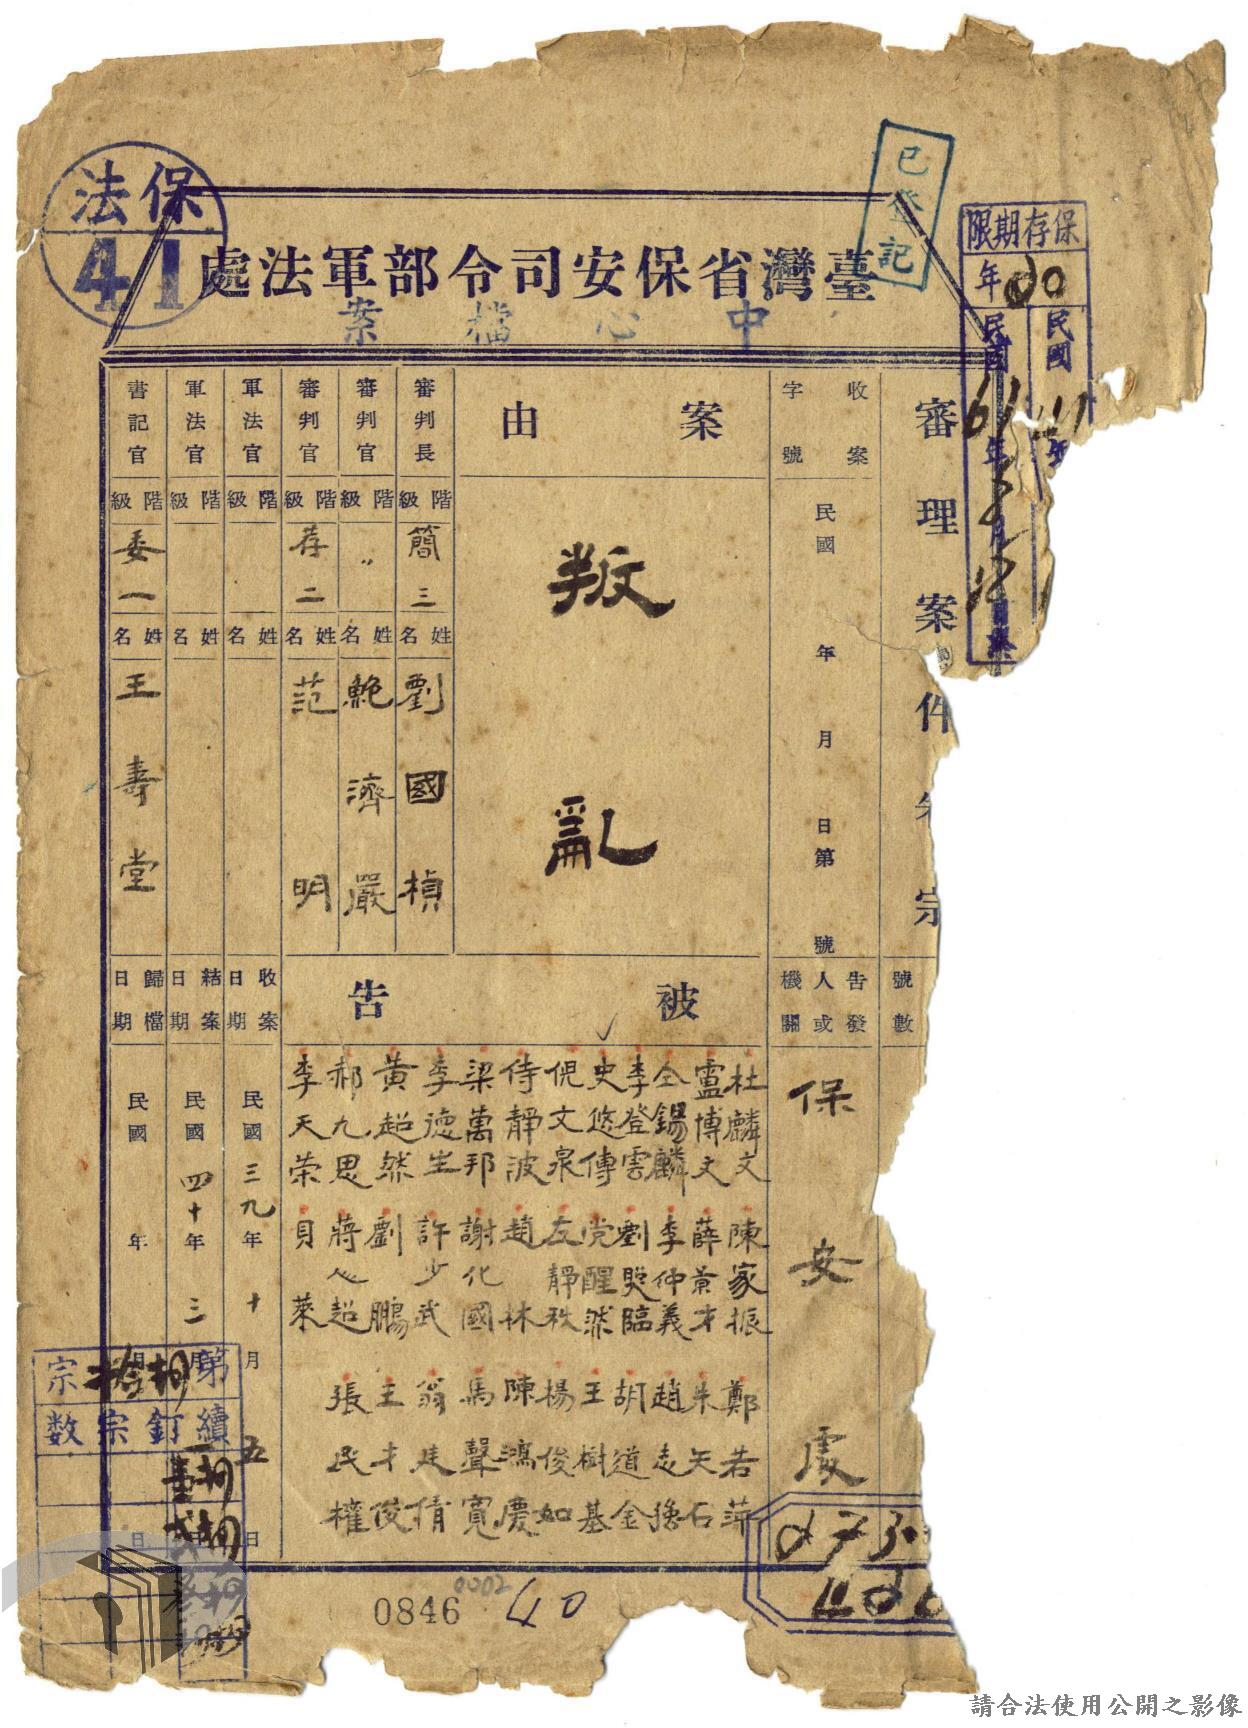 保法
41
已登記
臺灣省保安司令部軍法處
中心檔案
保存期限
年
民國
民國61年
審理案件卷宗
收案字號
民國 年 月 日第 號
案由
叛亂
審判長
階級
簡三
姓名
劉國楨
審判官
階級
〃
姓名
鮑濟嚴
審判官
階級
荐二
姓名
范明
軍法官
階級
姓名
軍法官
階級
姓名
書記官
階級
委一
姓名
王壽堂
號數
告發人或機關
保安處
被告
杜麟文 陳家振 鄭若萍
盧博文 薛景才 朱天石
仝錫麟 李仲義 趙志擔
李登雲 劉熙臨 胡道金
史悠傳 党醒然 王樹基
倪文泉 左靜秩 楊俊如
侍靜波 趙林 陳鴻慶
梁萬邦 謝化國 馬聲寬
李德生 許少武 翁廷倩
黃超然 劉鵬 王才俊
郝九思 蔣心超 張民權
李天榮 貝萊
收案日期
民國三九年十月五日
結案日期
民國四十年三月
歸檔日期
民國 年 月 日
第 宗
續訂宗數
0846
0002
40
請合法使用公開之影像